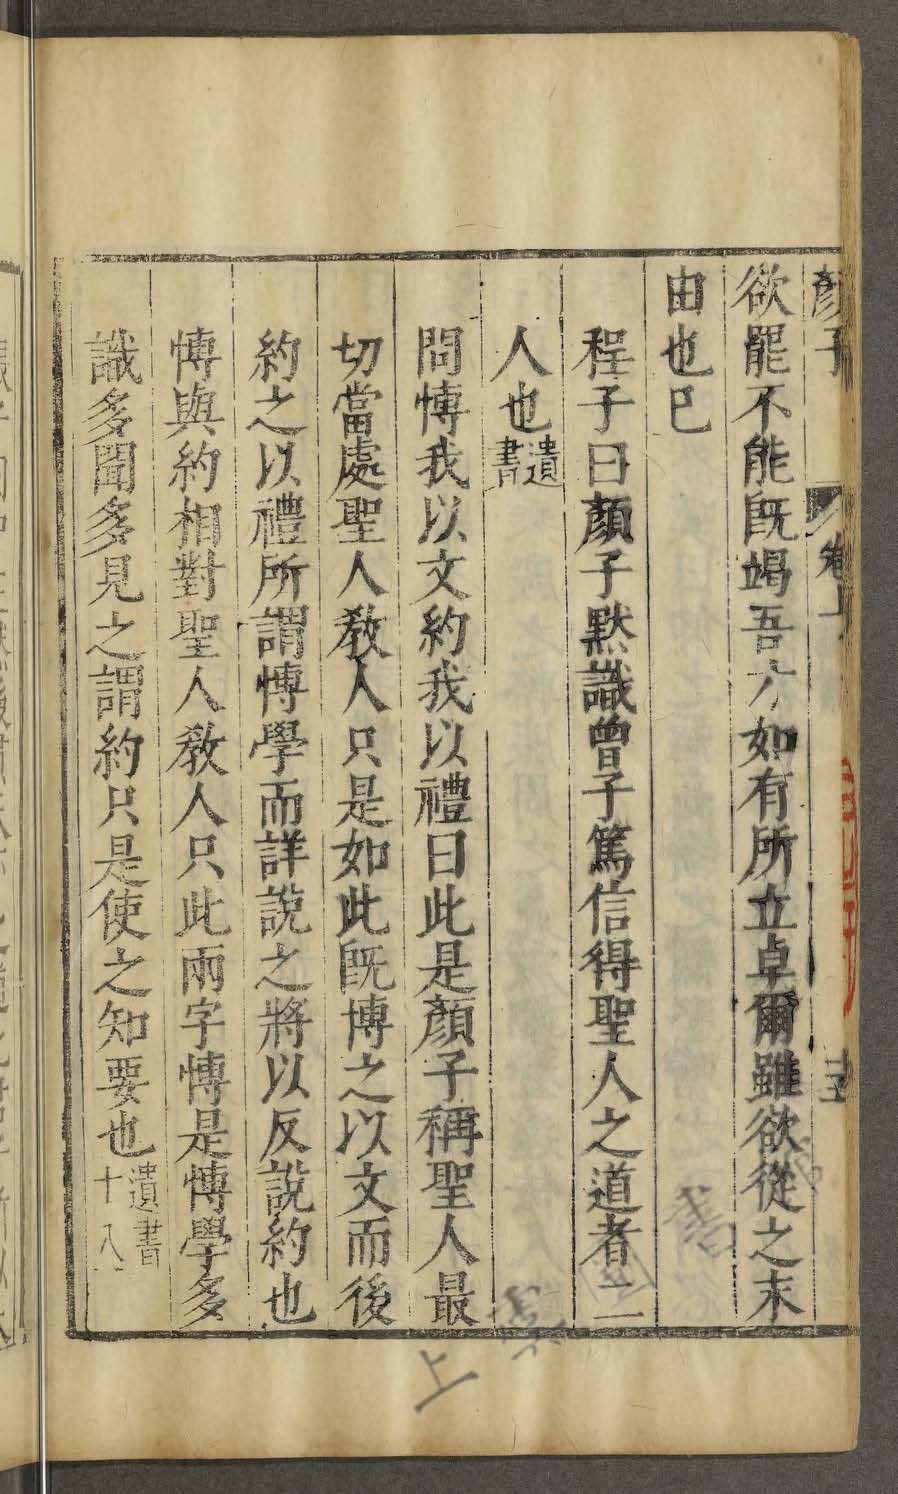 顏子 卷上 十五
欲罷不能旣竭吾才如有所立卓爾雖欲從之末
由也已
程子曰顏子默識曾子篤信得聖人之道者二
人也遺書
問博我以文約我以禮曰此是顏子稱聖人最
切當處聖人教人只是如此旣博之以文而後
約之以禮所謂博學而詳說之將以反說約也
博與約相對聖人教人只此兩字博是博學多
識多聞多見之謂約只是使之知要也遺書十八